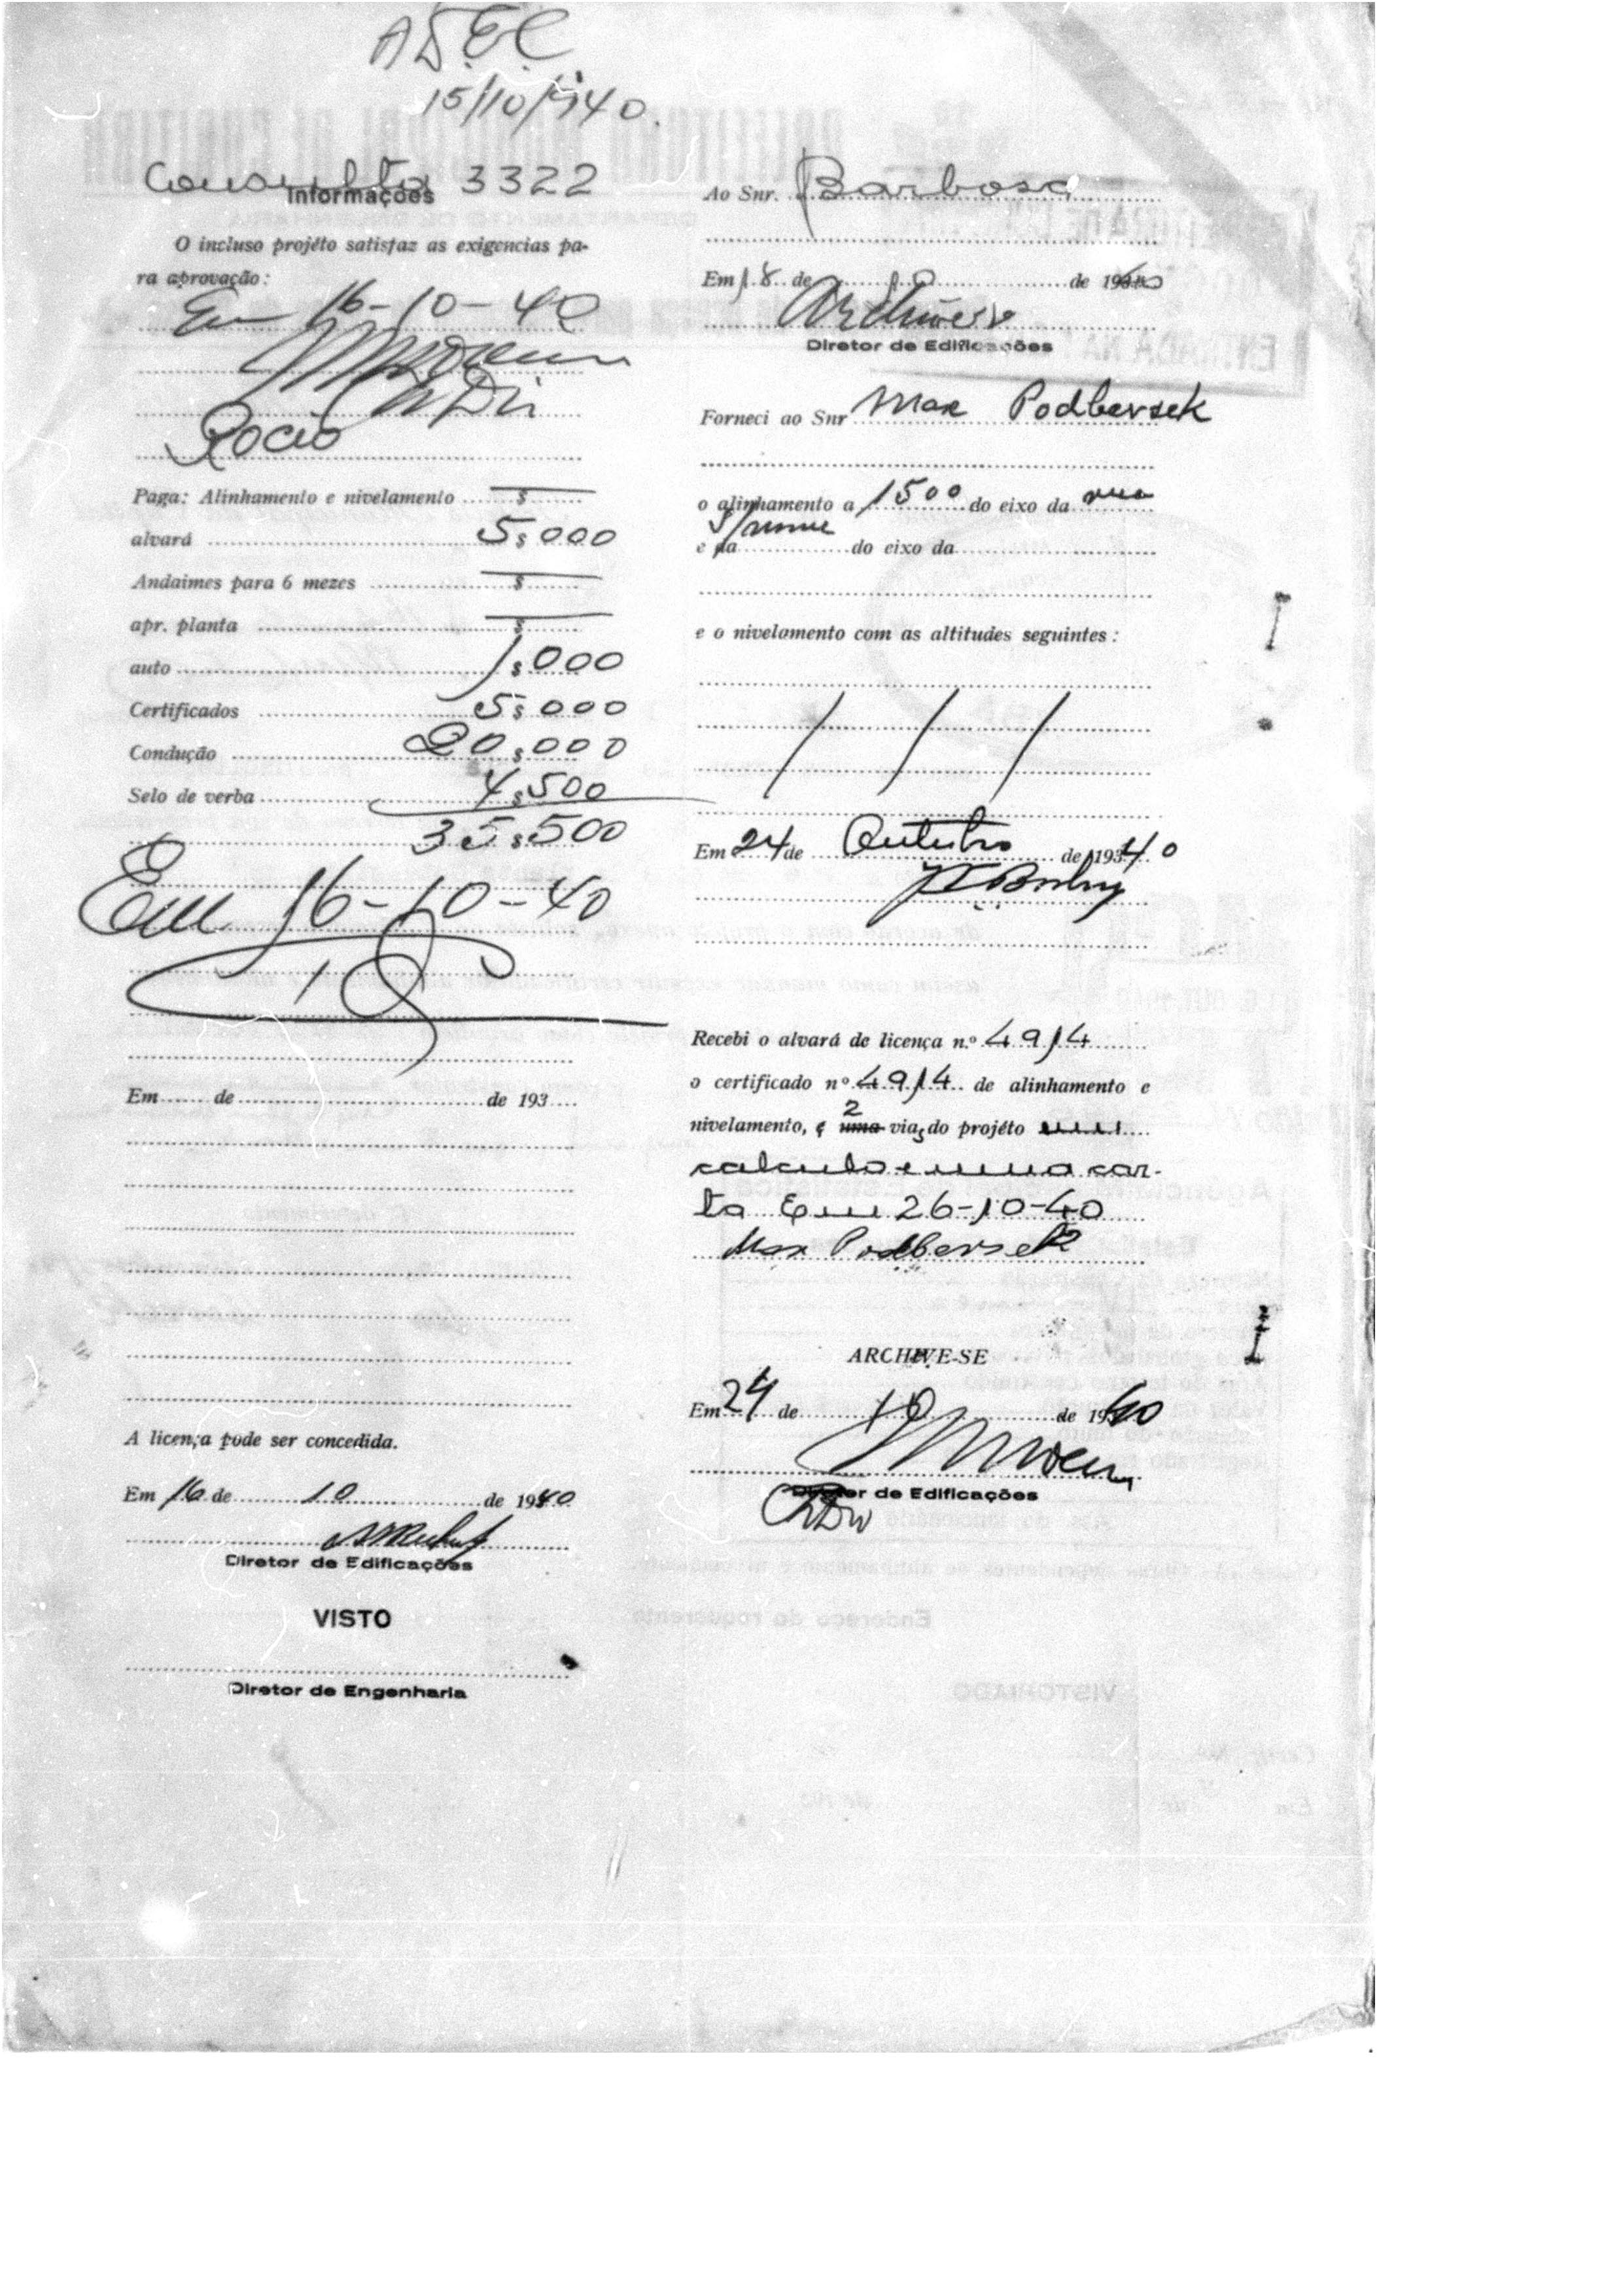 15/10/940.
Consulta 3322
Informações
O incluso projéto satisfaz as exigencias pa-
ra aprovação:
Em 16-10-40
Rocio
Paga: Alinhamento e nivelamento $
alvará 5$000
Andaimes para 6 mezes $
apr. planta $
auto 1$000
Certificados 5$000
Condução 20$000
Selo de verba 4$500
35$500
Em 16-10-40
Em de de 193
A licença pode ser concedida.
Em 16 de 10 de 1940
Diretor de Edificações
VISTO
Diretor de Engenharia
Ao Snr. Barbosa
Em 18 de 10 de 1940
Diretor de Edificações
Forneci ao Snr Max Podbersek
o alinhamento a 1500 do eixo da rua
s/nome
e da do eixo da
e o nivelamento com as altitudes seguintes:
Em 24 de Outubro de 1940
Recebi o alvará de licença n.º 4914
o certificado nº 4914 de alinhamento e
nivelamento, e 2 uma vias do projéto um
calculo e uma car-
ta Em 26-10-40
Max Podbersek
ARCHIVE-SE
Em 24 de 10 de 1940
Diretor de Edificações